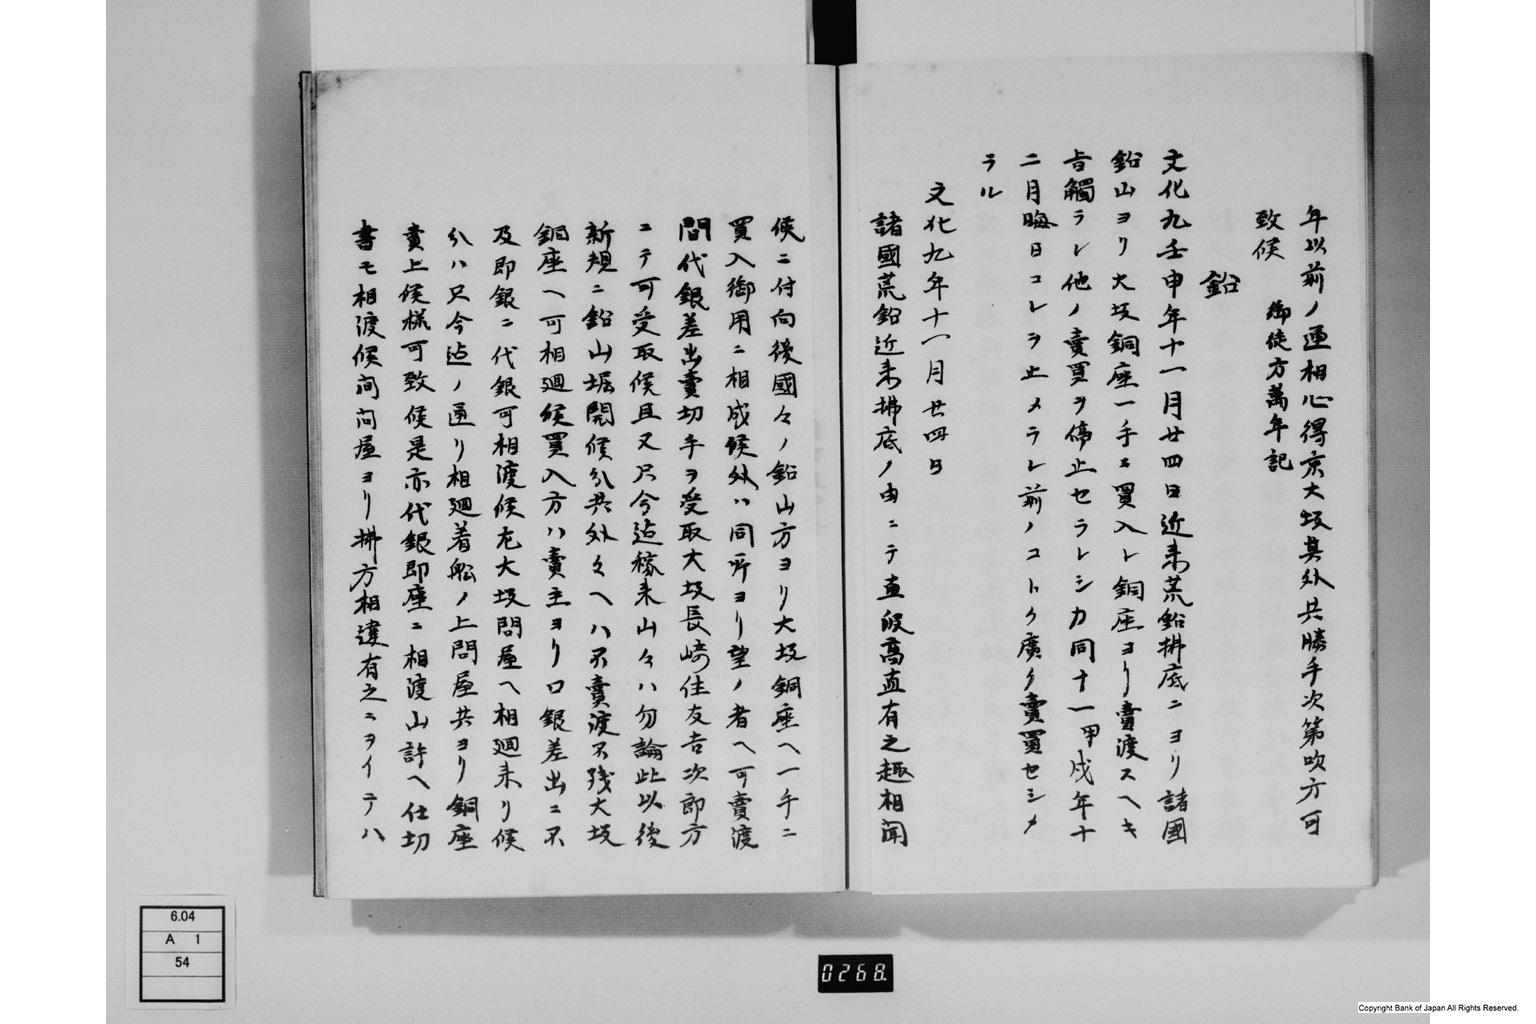 年以前ノ通相心得京大坂其外共勝手次第吹方可
致候
御徒方萬年記
鉛
文化九壬申年十一月廿四日近来荒鉛拂底ニヨリ諸國
鉛山ヨリ大坂銅座一手ニ買入レ銅座ヨリ賣渡スヘキ
旨觸ラレ他ノ賣買ヲ停止セラレシカ同十一甲戌年十
二月晦日コレヲ止メラレ前ノコトク廣ク賣買セシメ
ラル
文化九年十一月廿四日
諸國荒鉛近来拂底ノ由ニテ直段高直有之趣相聞
候ニ付向後國々ノ鉛山方ヨリ大坂銅座ヘ一手ニ
買入御用ニ相成候外ハ同所ヨリ望ノ者ヘ可賣渡
間代銀差出賣切手ヲ受取大坂長崎住友吉次郎方
ニテ可受取候且又只今迠稼来山々ハ勿論此以後
新規ニ鉛山堀開候分共外々ヘハ不賣渡不残大坂
銅座ヘ可相廻候買入方ハ賣主ヨリ口銀差出ニ不
及即銀ニ代銀可相渡候尤大坂問屋ヘ相廻来リ候
分ハ只今迠ノ通リ相廻着舩ノ上問屋共ヨリ銅座
賣上候様可致候是亦代銀即座ニ相渡山許ヘ仕切
書モ相渡候間問屋ヨリ拂方相違有之ニヲイテハ
6.04
A 1
54
0268.
Copyright Bank of Japan All Rights Reserved.